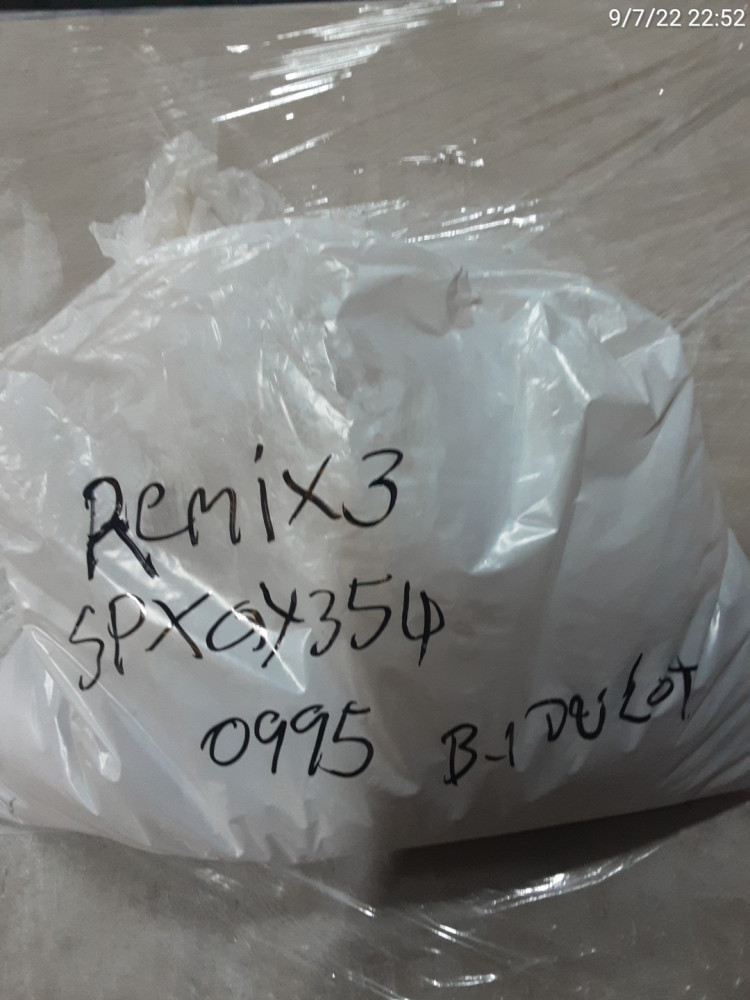 9/7/22 22:52
Remix3
SPX0Y354
0995 B-1 LOT